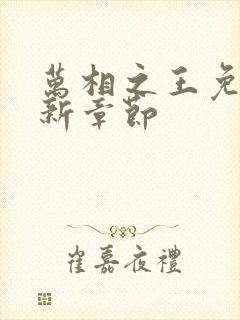 萬相之王免
新章節
崔嘉夜禮